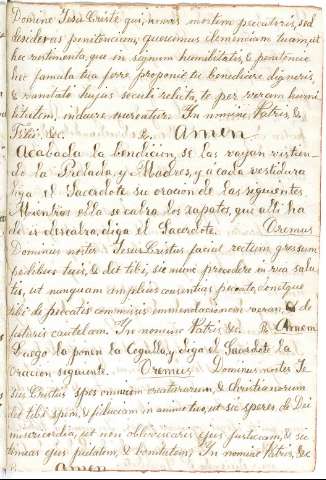 Domine Jesu Criste qui, nonvis mortem peccatoris, sed
desideras penitenciam, quaesumus clemenciam tuam, ut
hec vestimenta, que in signum humilitatis, & penitencie
hec famula tua ferre proponit tu benedicere digneris,
& vanitate hujus seculi relicta, te per veram humi
litatem, induere mereatur. In nomine Patris, &
Filii, &c. R. Amen
Acabada la bendicion, se las vayan vistien-
do la Prelada, y Madres, y a cada vestidura
diga el Sacerdote su oracion de las siguientes
Mientras ella se calza los zapatos, que alli ha
de ir descalza, diga el Sacerdote. Oremus
Dominus noster Jesus Cristus faciat rectum gressum
pedibus tuis, & det tibi, sic nunc procedere in via salu
tis, ut nunquam amplius consentias pecato, donetque
tibi de pecatis commissis emmendacionem veram, & de
futuris cautelam. In nomine Patris &c. R. Amem
Luego la ponen la Cogulla, y diga el Sacerdote la
oracion siguiente. Oremus Dominus noster Je
sus Cristus spes omnium creaturarum, & christianorum
det tibi spem, & fiduciam in animo tuo, ut sic speres de Dei
misericordia, ut non obliviscaris ejus justiciam, & sic
timeas ejus justiciam, & bonitatem, In nomine Patris, &c
Amen